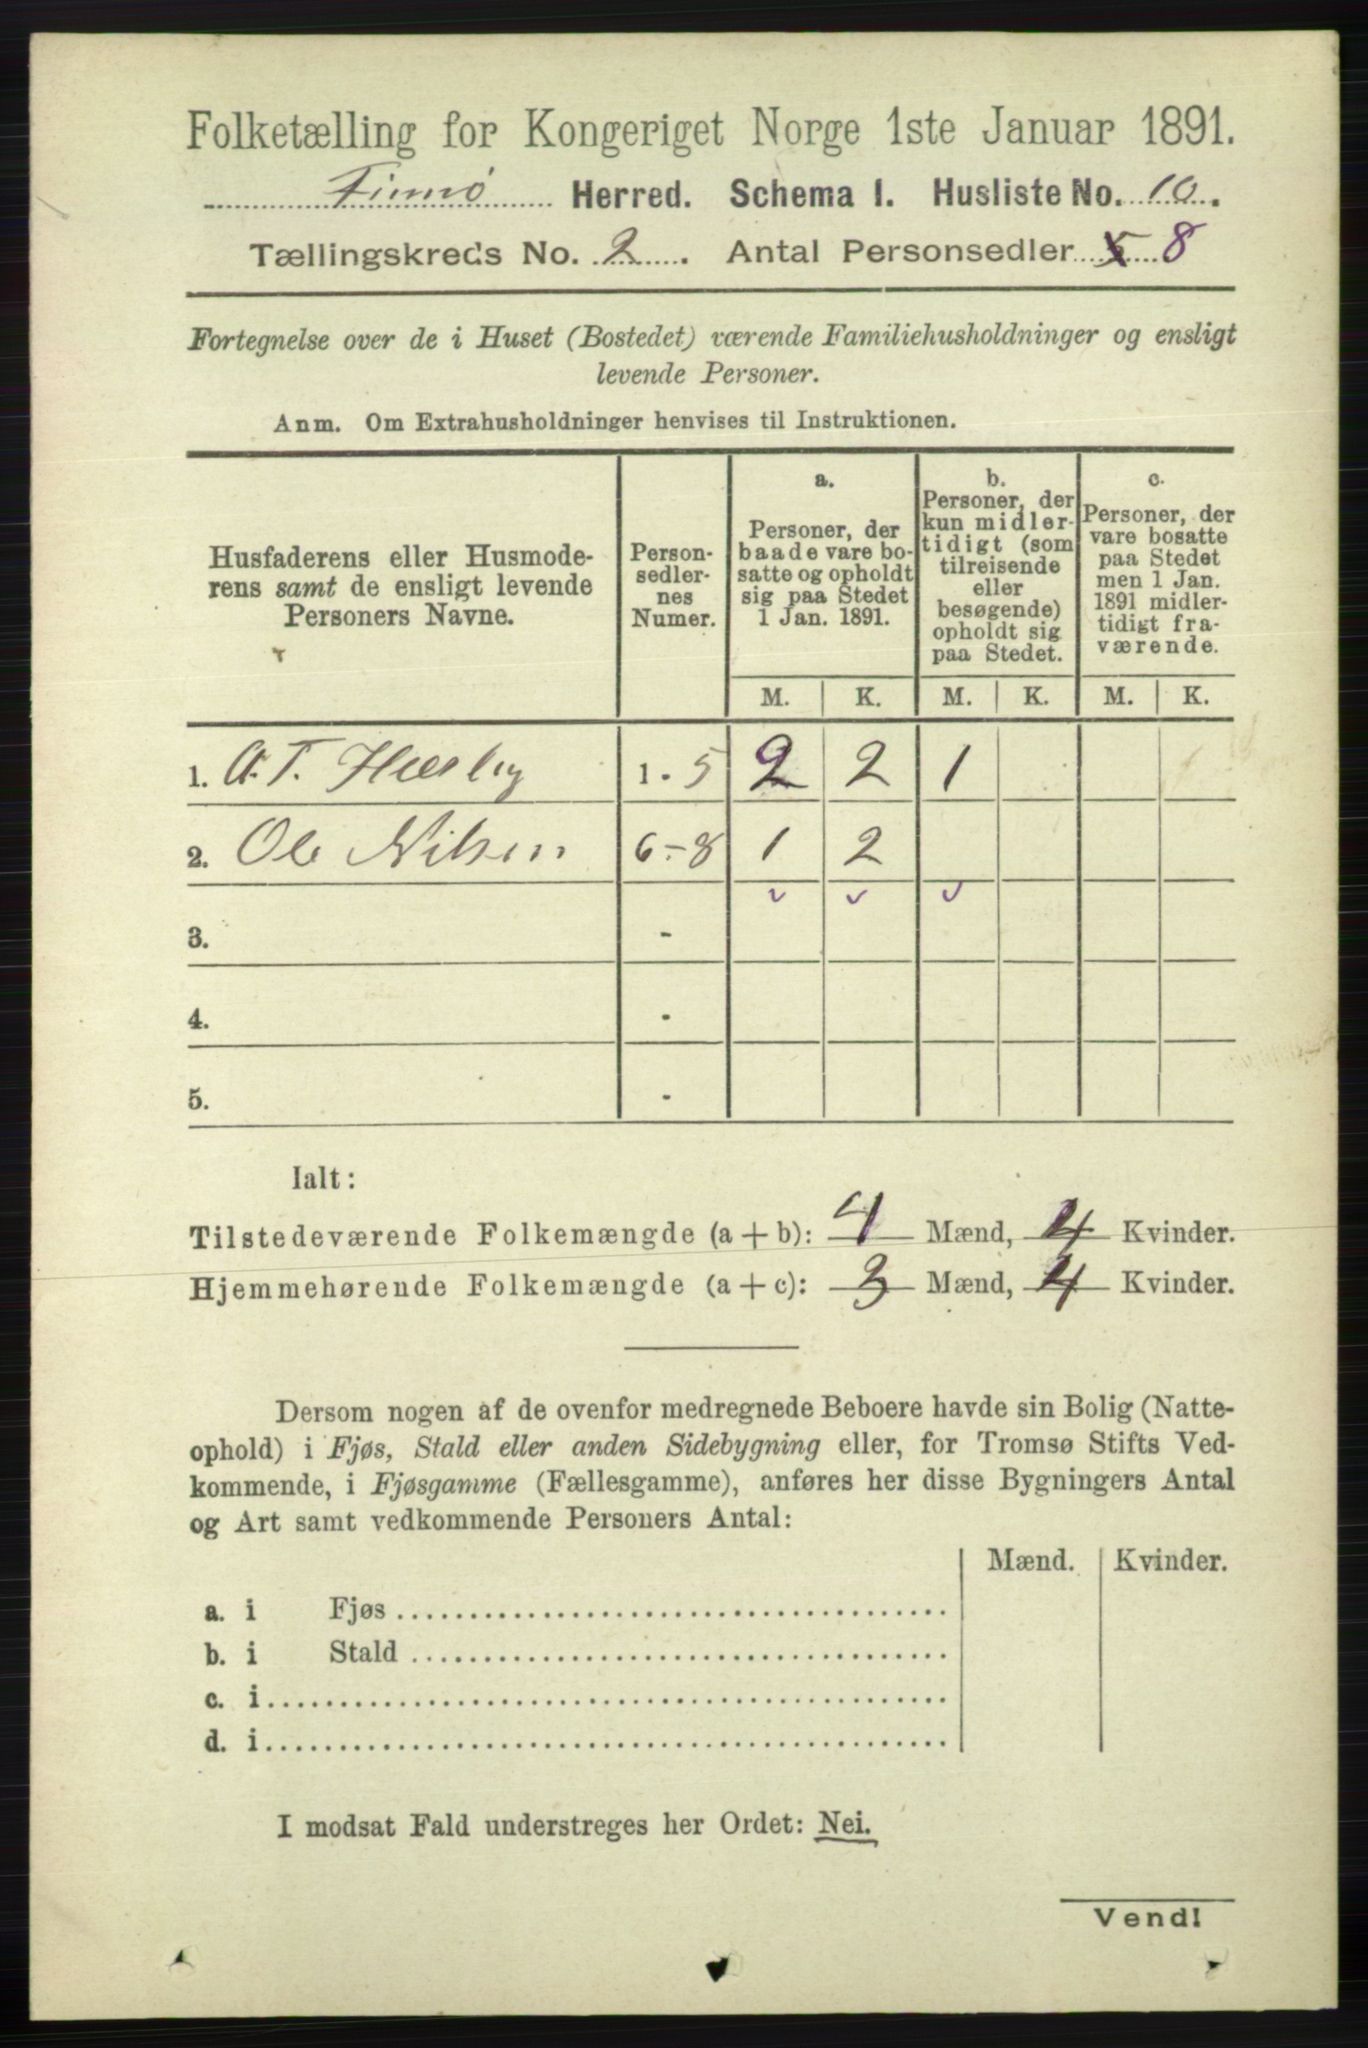 Folketælling for Kongeriget Norge 1ste Januar 1891.
Finnø Herred. Schema I. Husliste No. 10.
Tællingskreds No. 2. Antal Personsedler 8
Fortegnelse over de i Huset (Bostedet) værende Familiehusholdninger og ensligt
levende Personer.
Anm. Om Extrahusholdninger henvises til Instruktionen.
Husfaderens eller Husmode-
rens samt de ensligt levende
Personers Navne.
Person-
sedler-
nes
Numer.
a.
Personer, der
baade vare bo-
satte og opholdt
sig paa Stedet
1 Jan. 1891.
b.
Personer, der
kun midler-
tidigt (som
tilreisende
eller
besøgende)
opholdt sig
paa Stedet.
c.
Personer, der
vare bosatte
paa Stedet
men 1 Jan.
1891 midler-
tidigt fra-
værende.
M. K. M. K. M. K.
1. A. T. 1 - 5 2 2 1
2. Ole Nilsen 6 - 8 1 2
3. -
4. -
5. -
Ialt:
Tilstedeværende Folkemængde (a + b): 4 Mænd, 4 Kvinder.
Hjemmehørende Folkemængde (a + c): 3 Mænd, 4 Kvinder.
Dersom nogen af de ovenfor medregnede Beboere havde sin Bolig (Natte-
ophold) i Fjøs, Stald eller anden Sidebygning eller, for Tromsø Stifts Ved-
kommende, i Fjøsgamme (Fællesgamme), anføres her disse Bygningers Antal
og Art samt vedkommende Personers Antal:
Mænd. Kvinder.
a. i Fjøs
b. i Stald
c. i
d. i
I modsat Fald understreges her Ordet: Nei.
Vend!